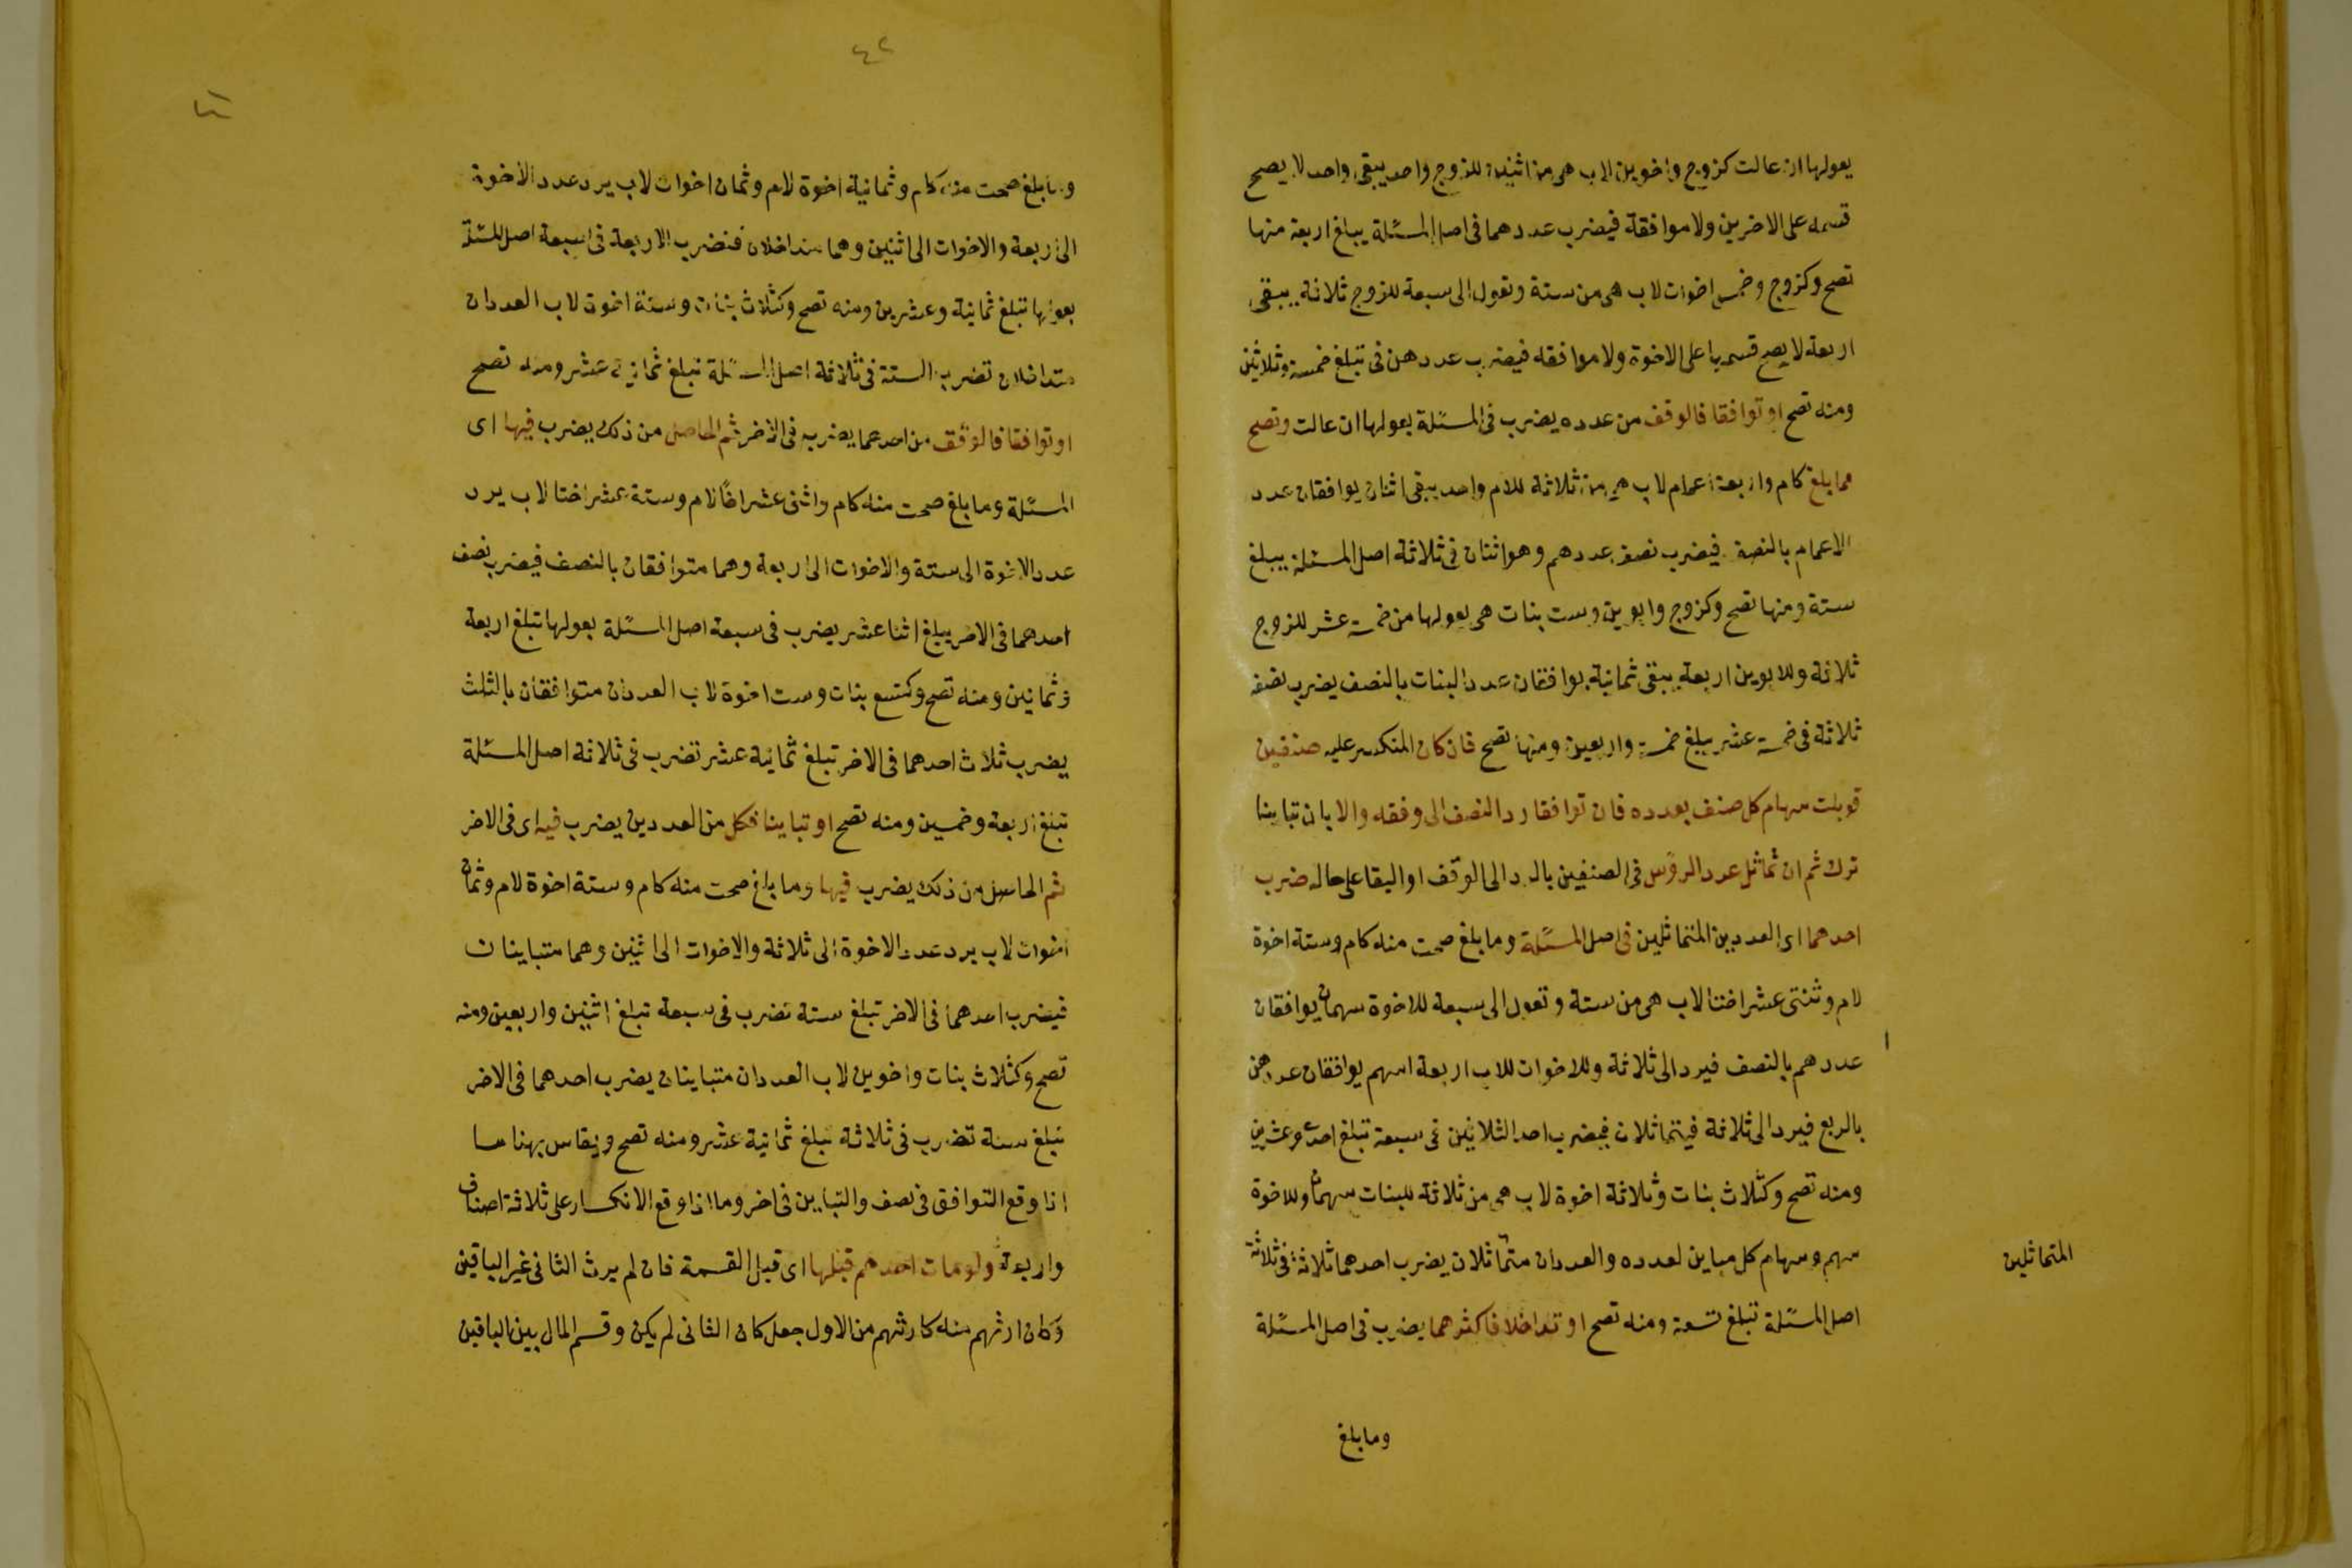 بعولها ان عالت كزوج واخوين لاب هي من اثنين للزوج واحد يبقى واحد لا يصح
قسمه على الاخرين ولا موافقة فيضرب عددهما في اصل المسئلة يبلغ اربعة منها
تصح وكزوج وخمس اخوات لاب هي من ستة وتعول الى سبعة للزوج ثلاثة يبقى
اربعة لا يصح قسمها على الاخوة ولا موافقه فيضرب عددهن في تبلغ خمسة وثلاثين
ومنه تصح او توافقا فالوفق من عدده يضرب في المسئلة بعولها ان عالت وتصح
مما بلغ كام واربعة اعمام لاب هي من ثلاثة للام واحد يبقى اثنان يوافقان عدد
الاعمام بالنصف فيضرب نصف عددهم وهو اثنان في ثلاثة اصل المسئلة يبلغ
ستة ومنها تصح وكزوج وابوين وست بنات هي بعولها من خمسة عشر للزوج
ثلاثة وللابوين اربعة يبقى ثمانية يوافقان عدد البنات بالنصف يضرب نصفه
ثلاثة في خمسة عشر يبلغ خمسة واربعين ومنها تصح فان كان المنكسر عليه صنفين
قوبلت سهام كل صنف بعدده فان توافقا رد النصف الى وفقه والا بان تباينا
ترك ثم ان تماثل عدد الرؤس في الصنفين بالرد الى الوفق او البقا على حاله ضرب
احدهما اى العددين المتماثلين في اصل المسئلة وما بلغ صحت منه كام وستة اخوة
لام وثنتى عشر اختا لاب هي من ستة وتعول الى سبعة للاخوة سهمان يوافقان
عددهم بالنصف فيرد الى ثلاثة وللاخوات للاب اربعة اسهم يوافقان عددهن
بالربع فيرد الى ثلاثة فيتماثلان فيضرب احد الثلاثين في سبعة تبلغ احد وعشرين
ومنه تصح وكثلاث بنات وثلاثة اخوة لاب هي من ثلاثة للبنات سهمان وللاخوة
سهم وسهام كل مباين لعدده والعددان متماثلان يضرب احدهما ثلاثة في ثلاثة
المتماثلين
اصل المسئلة تبلغ تسعة ومنه تصح او تداخلا فاكثرهما يضرب في اصل المسئلة
وما بلغ
٤٢
وما بلغ صحت منه كام وثمانية اخوة لام وثمان اخوات لاب يرد عدد الاخوة
الى اربعة والاخوات الى اثنين وهما متداخلان فنضرب الاربعة في سبعة اصل المسئلة
بعولها تبلغ ثمانية وعشرين ومنه تصح وكثلاث بنات وستة اخوة لاب العددان
متداخلان تضرب الستة في ثلاثة اصل المسئلة تبلغ ثمانية عشر ومنه تصح
او توافقا فالوفق من احدهما يضرب في الاخر ثم الحاصل من ذلك يضرب فيها اى
المسئلة وما بلغ صحت منه كام واثنى عشر اخًا لام وستة عشر اختا لاب يرد
عدد الاخوة الى ستة والاخوات الى اربعة وهما متوافقان بالنصف فيضرب نصف
احدهما في الاخر يبلغ اثنا عشر يضرب في سبعة اصل المسئلة بعولها تبلغ اربعة
وثمانين ومنه تصح وكتسع بنات وست اخوة لاب العددان متوافقان بالثلث
يضرب ثلاث احدهما في الاخر تبلغ ثمانية عشر تضرب في ثلاثة اصل المسئلة
تبلغ اربعة وخمسين ومنه تصح او تباينا فكل من العددين يضرب فيه اى في الاخر
ثم الحاصل من ذلك يضرب فيها وما بلغ صحت منه كام وستة اخوة لام وثمان
اخوات لاب يرد عدد الاخوة الى ثلاثة والاخوات الى اثنين وهما متباينان
فيضرب احدهما في الاخر تبلغ ستة تضرب في سبعة تبلغ اثنين واربعين ومنه
تصح وكثلاث بنات واخوين لاب العددان متباينان يضرب احدهما في الاخر
تبلغ ستة تضرب في ثلاثة تبلغ ثمانية عشر ومنه تصح ويقاس بهنا ما
اذا وقع التوافق في نصف والتباين في اخر وما اذا وقع الانكسار على ثلاثة اصناف
واربعة ولو مات احدهم قبلها اى قبل القسمة فان لم يرث الثانى غير الباقين
وكان ارثهم منه كارثهم من الاول جعل كان الثانى لم يكن وقسم المال بين الباقين